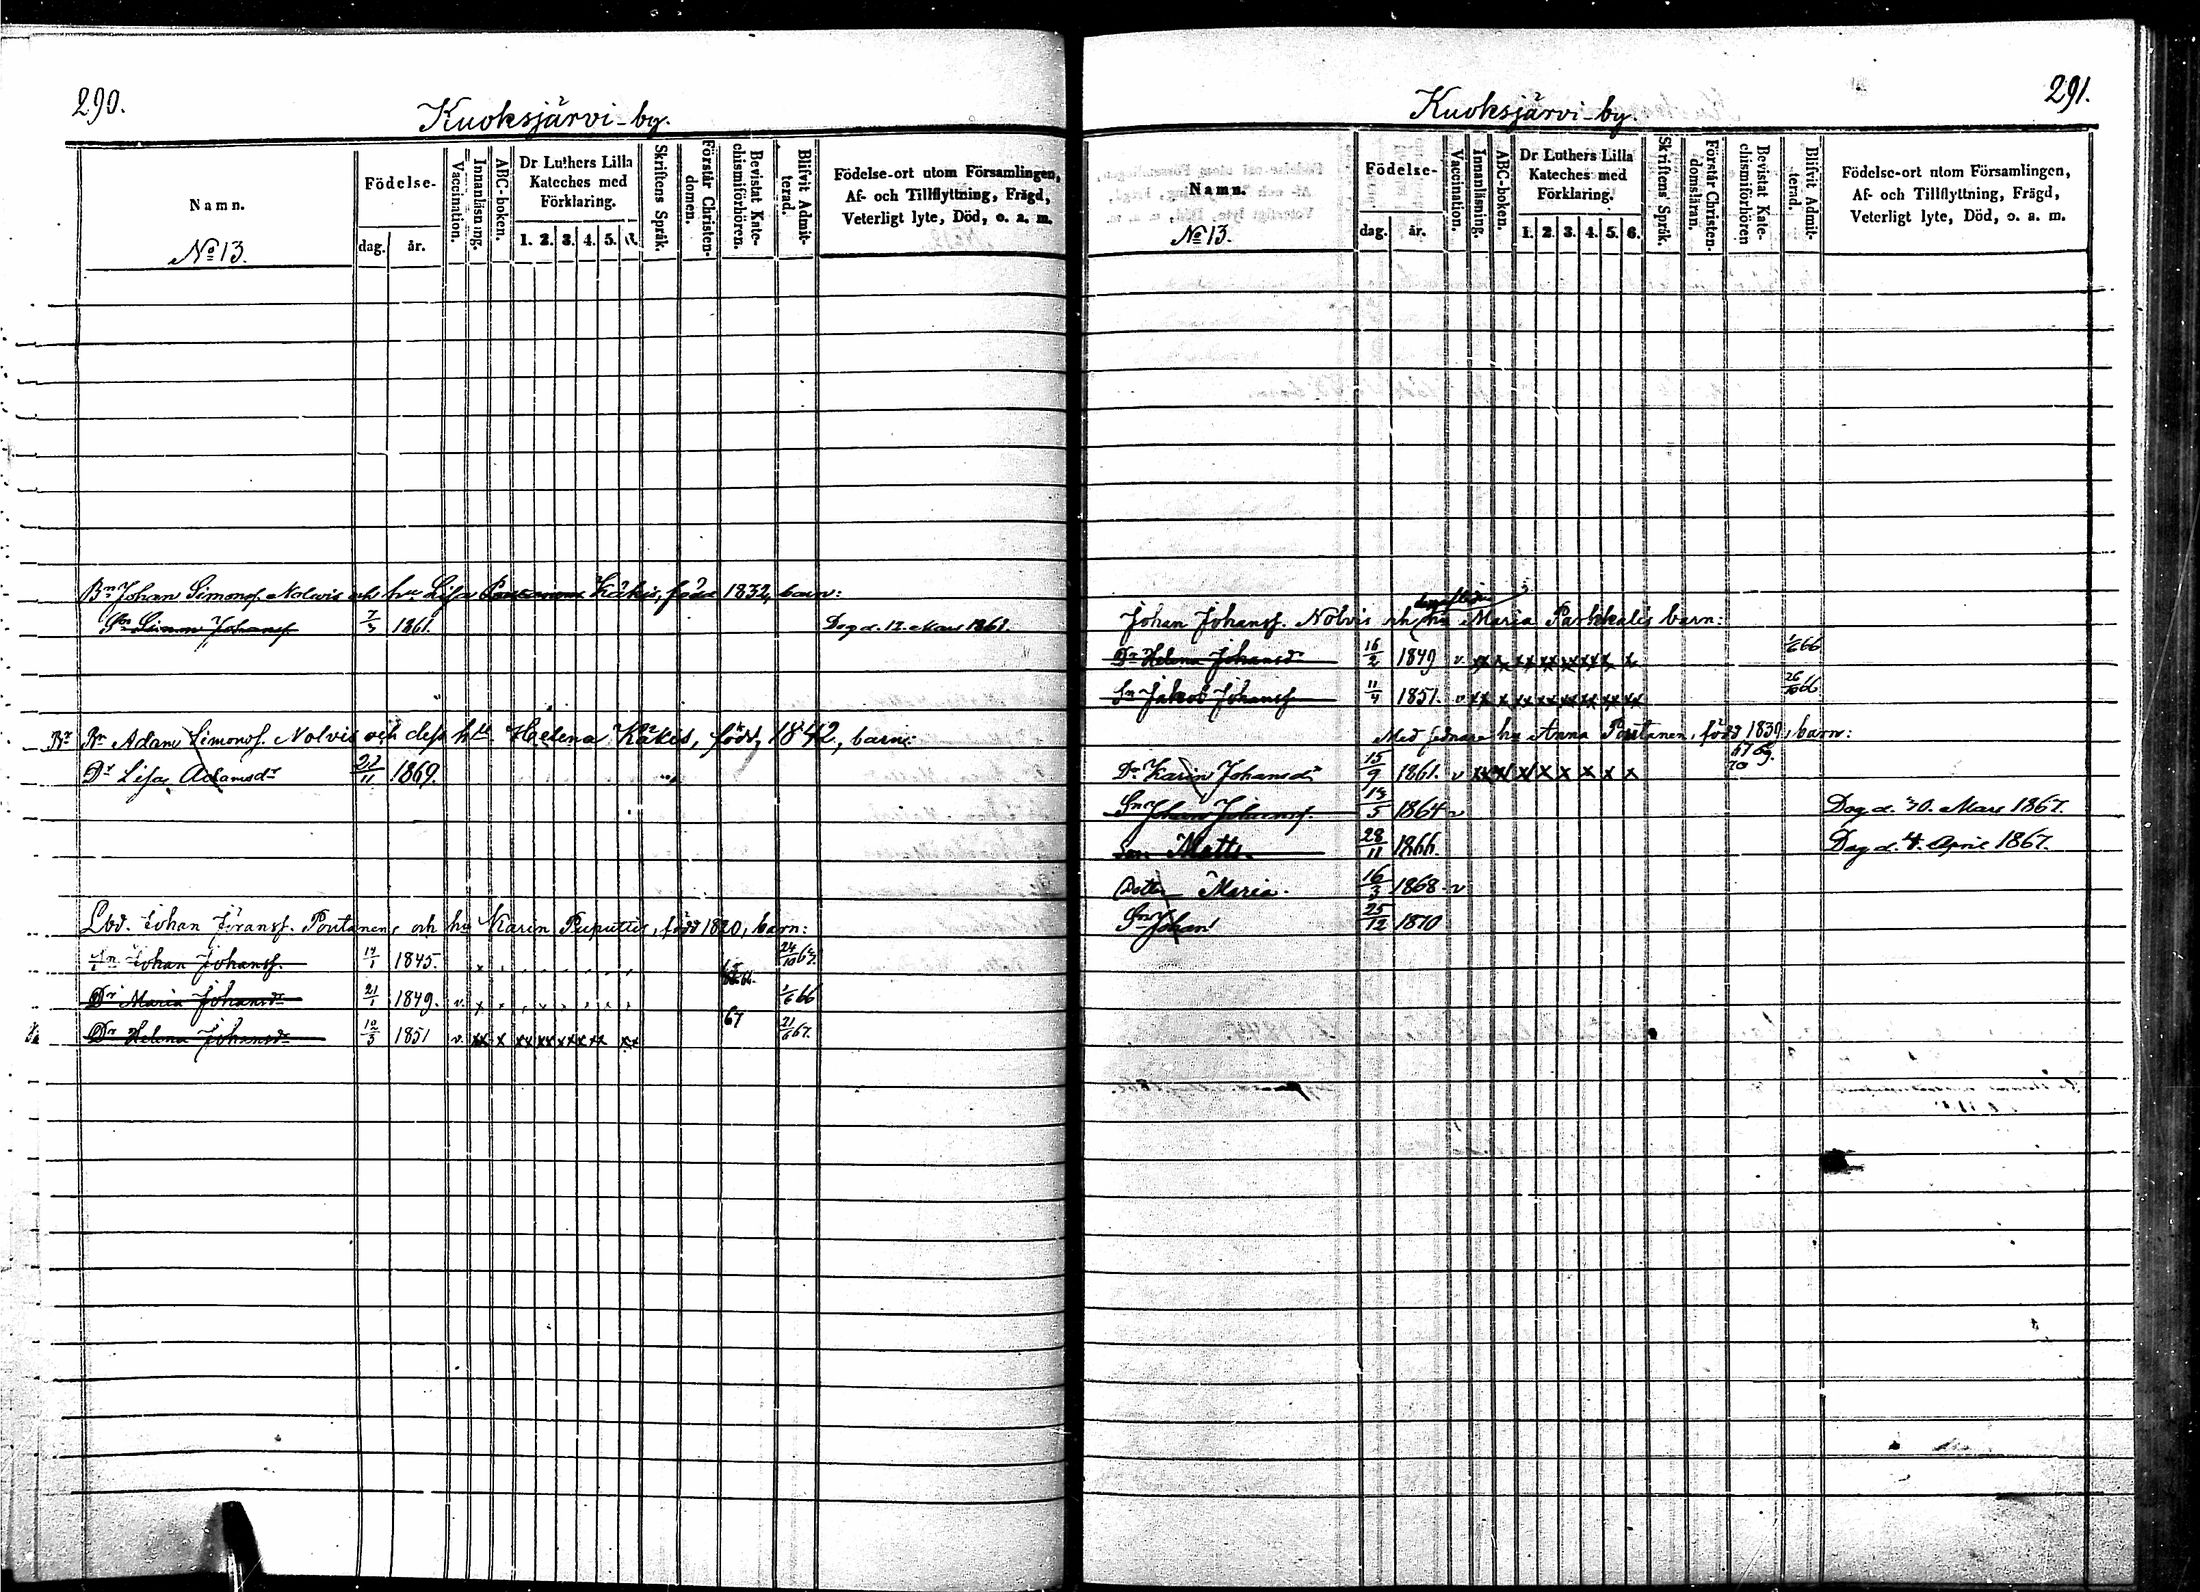 290.
Kuoksjärvi-by.
Namn.
Födelse-
dag.
år.
Vaccination.
Innanläsning.
ABC-boken.
Dr Luthers Lilla
Kateches med
Förklaring.
1. 2. 3. 4. 5. 6.
Skriftens Språk.
Förstår Christen-
domen.
Bevistat Kate-
chismiförhören.
Blifvit Admit-
terad.
Födelse-ort utom Församlingen,
Af- och Tillflyttning, Frägd,
Veterligt lyte, Död, o. a. m.
No 13.
Bn Johan Simonss. Nolvis och hu Lisa Käkis, född 1832, barn:
Sn Simon Johanss. 7/3 1861. Dog d. 12. Mars 1861.
Br Bn Adam Simonss. Nolvis och dess hu Helena Käkis, född 1842, barn:
Dr Lisa Adamsdr 22/11 1869.
Lbd. Johan Jöranss. Poutanens och hu Karin Puputtis, född 1820, barn:
Sn Johan Johanss. 17/1 1845. 24/10 63.
Dr Maria Johansdr 21/1 1849. v. 1/6 66
Dr Helena Johansdr 12/3 1851 v. xx x xx xx xx xx xx 67 21/6 67.
291.
Kuoksjärvi-by.
Namn.
Födelse-
dag.
år.
Vaccination.
Innanläsning.
ABC-boken.
Dr Luthers Lilla
Kateches med
Förklaring.
1. 2. 3. 4. 5. 6.
Skriftens Språk.
Förstår Christen-
domsläran.
Bevistat Kate-
chismiförhören
Blifvit Admit-
terad.
Födelse-ort utom Församlingen,
Af- och Tillflyttning, Frägd,
Veterligt lyte, Död, o. a. m.
No 13.
Johan Johanss. Nolvis och hu Maria Parkkalis barn:
Dr Helena Johansdr 16/2 1849 v. xx x xx xx xx xx x x 1/6 66
Sn Jakob Johanss 11/4 1851. v xx x xx xx xx xx xx xx 26/10 66
Med sednare hu Anna Poutanen, född 1839, barn:
Dr Karin Johansdr 15/9 1861. v xx xx x x x x x x 67 69. 70
Sn Johan Johanss. 13/5 1864 v Dog d. 30. Mars 1867.
Son Matts. 28/11 1866. Dog d. 4. April 1867.
Dottr Maria. 16/3 1868. v
Sn Johan 25/12 1870